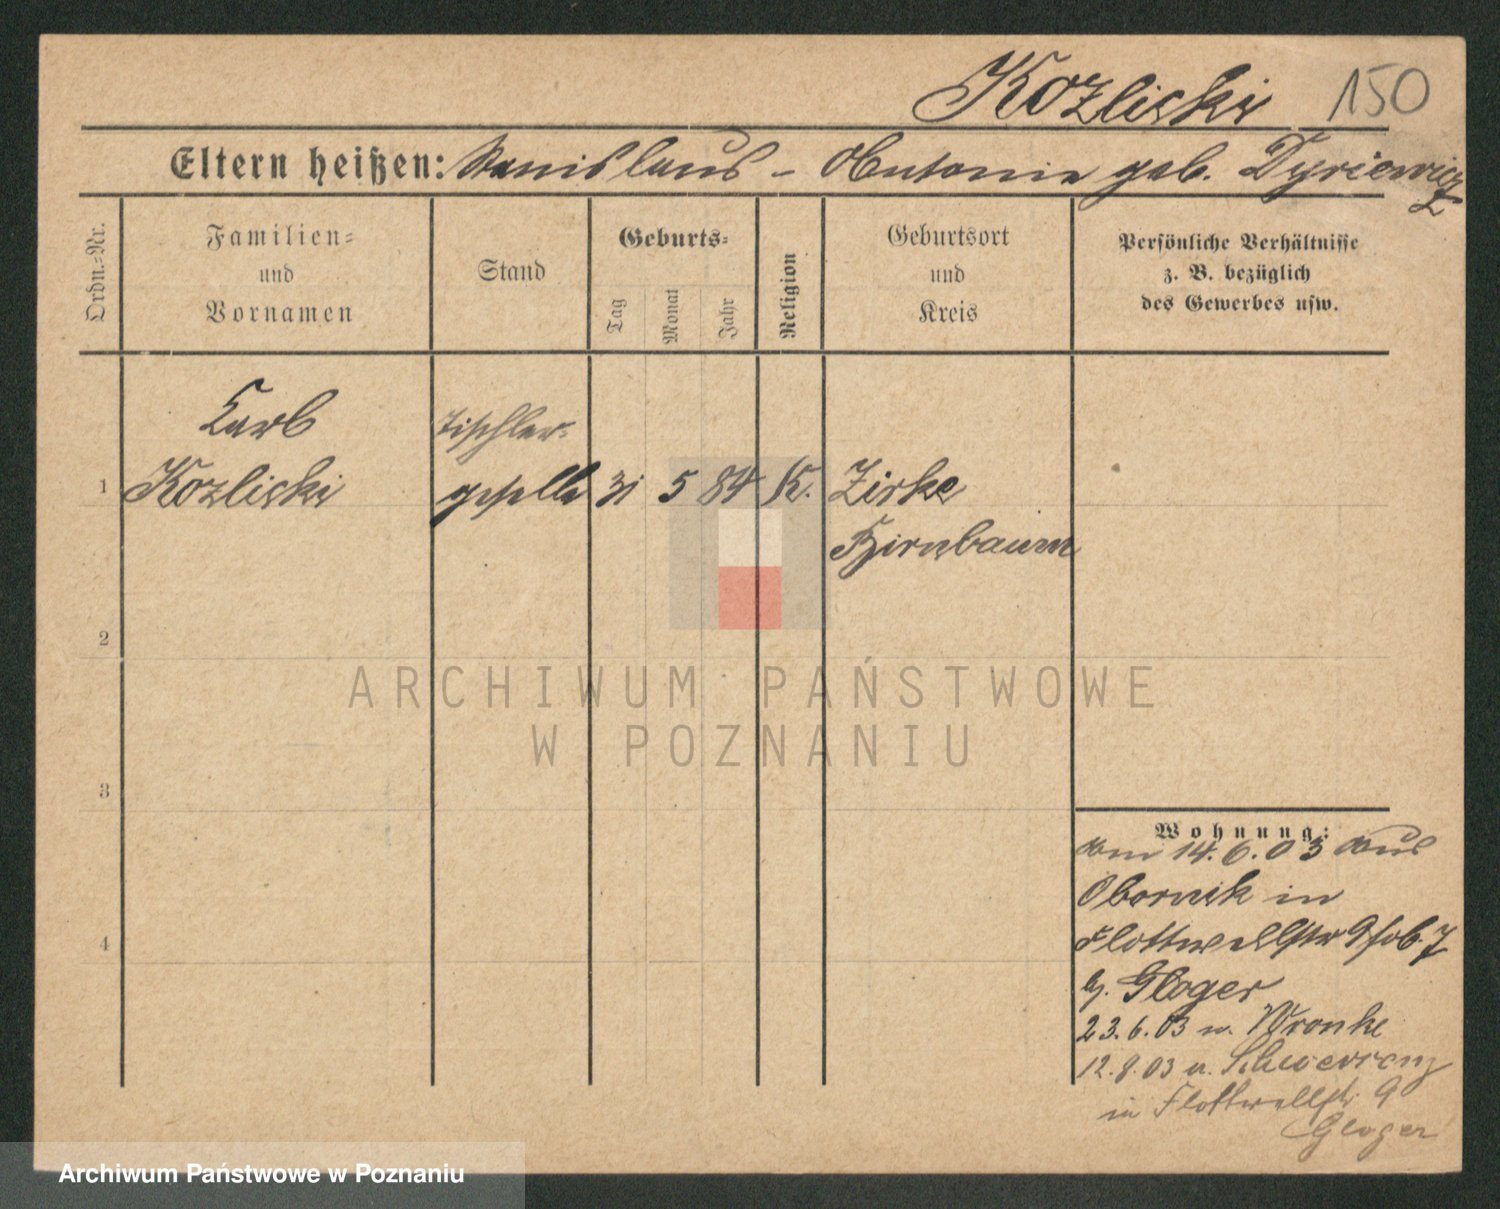 Kozliski 150
Eltern heißen: Stanislaus – Antonie geb. Dyriewicz
Ordn.-Nr.
Familien-
und
Vornamen
Stand
Geburts-
Tag
Monat
Jahr
Religion
Geburtsort
und
Kreis
Persönliche Verhältnisse
z. B. bezüglich
des Gewerbes usw.
Karl Tischler-
1 Kozliski geselle 31 5 84 K. Zirke
Birnbaum
2
ARCHIWUM PAŃSTWOWE
W POZNANIU
3
Wohnung:
am 14.6.03 aus
Obornik in
Flottwellstr 9
b. Gloger
23.6.03 n. Wronke
12.9.03 a. Schwersenz
in Flottwellstr. 9
Gloger
4
Archiwum Państwowe w Poznaniu